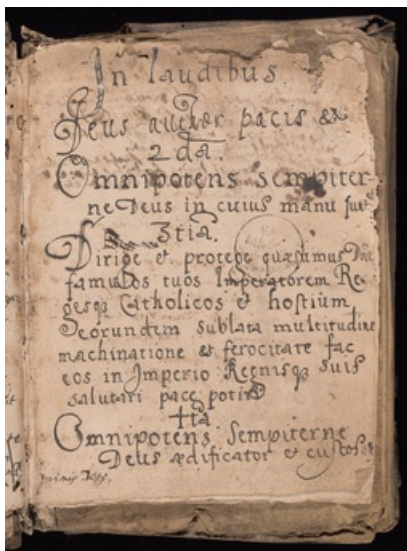 In laudibus
Deus author pacis &
2da.
Omnipotens sempiter-
ne Deus in cuius manu sunt
3tia.
Dirige et protege quæsumus Dne
famulos tuos Imperatorem Re
gesq Catholicos et hostium
eorundem sublata multitudine
machinatione et ferocitate fac
eos in Imperio Regnisq suis
salutari pace potiri
4ta
Omnipotens Sempiterne
Deus ædificator et custos &